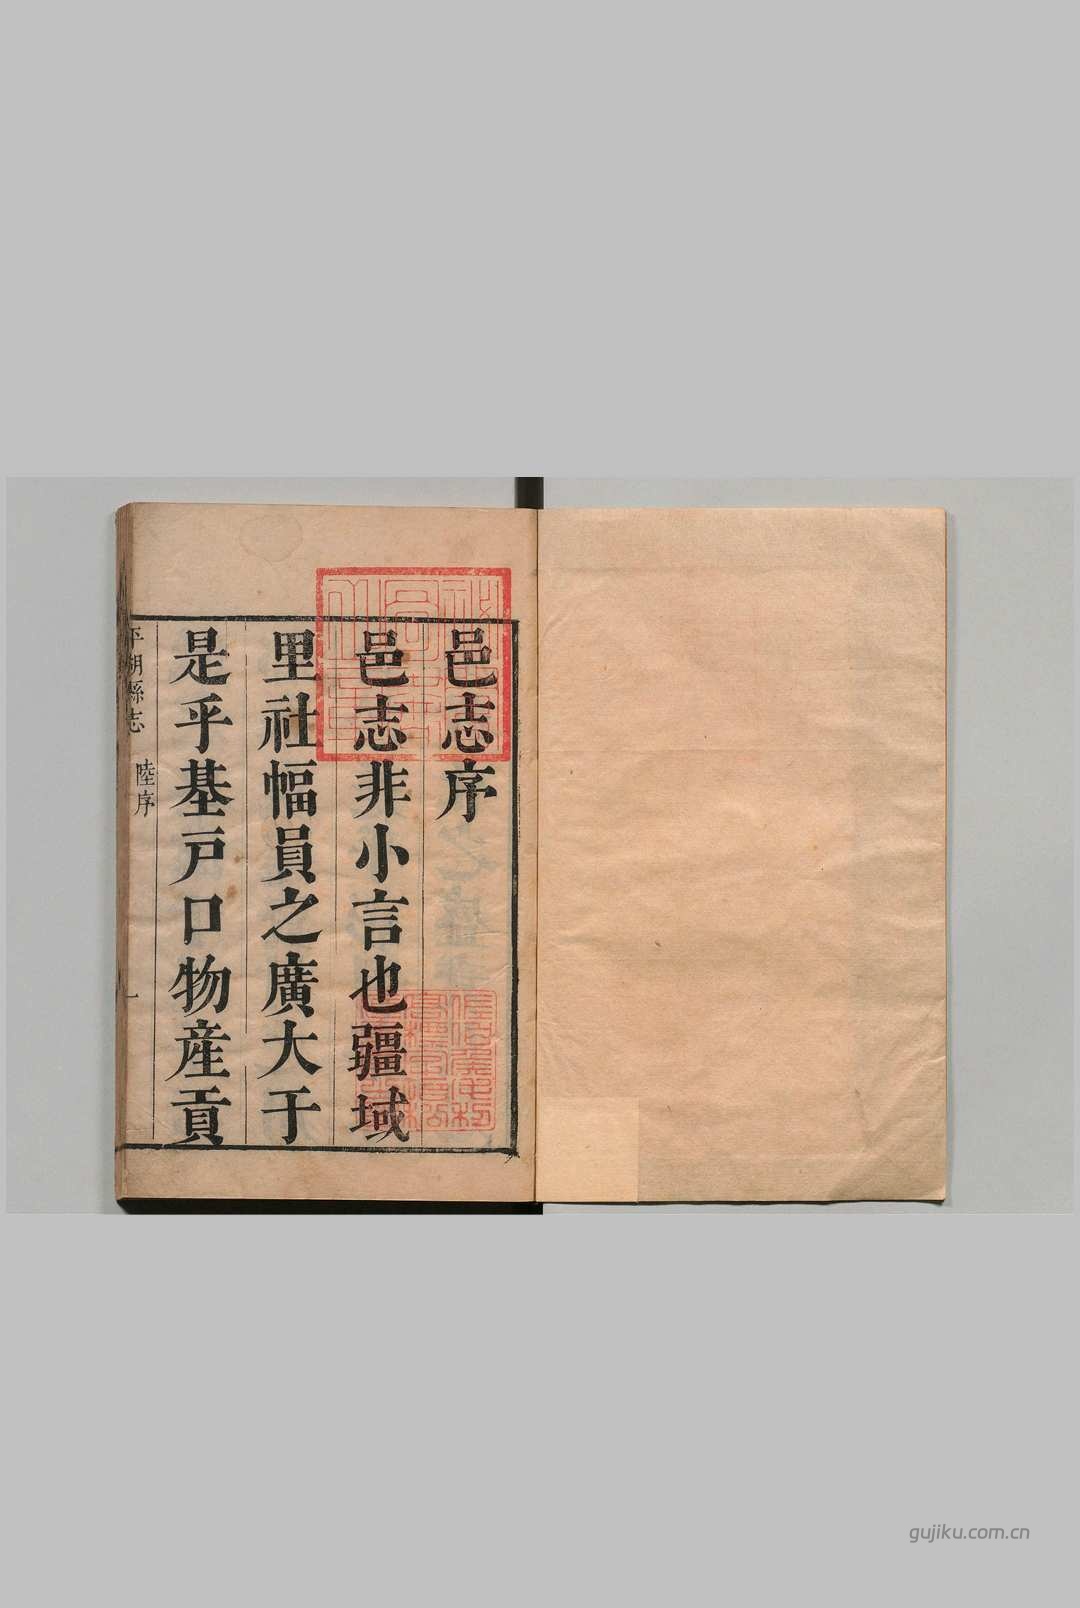 邑志序
邑志非小言也疆域
里社幅員之廣大于
是乎基戸口物產貢
平湖縣志 陸序 一
gujiku.com.cn